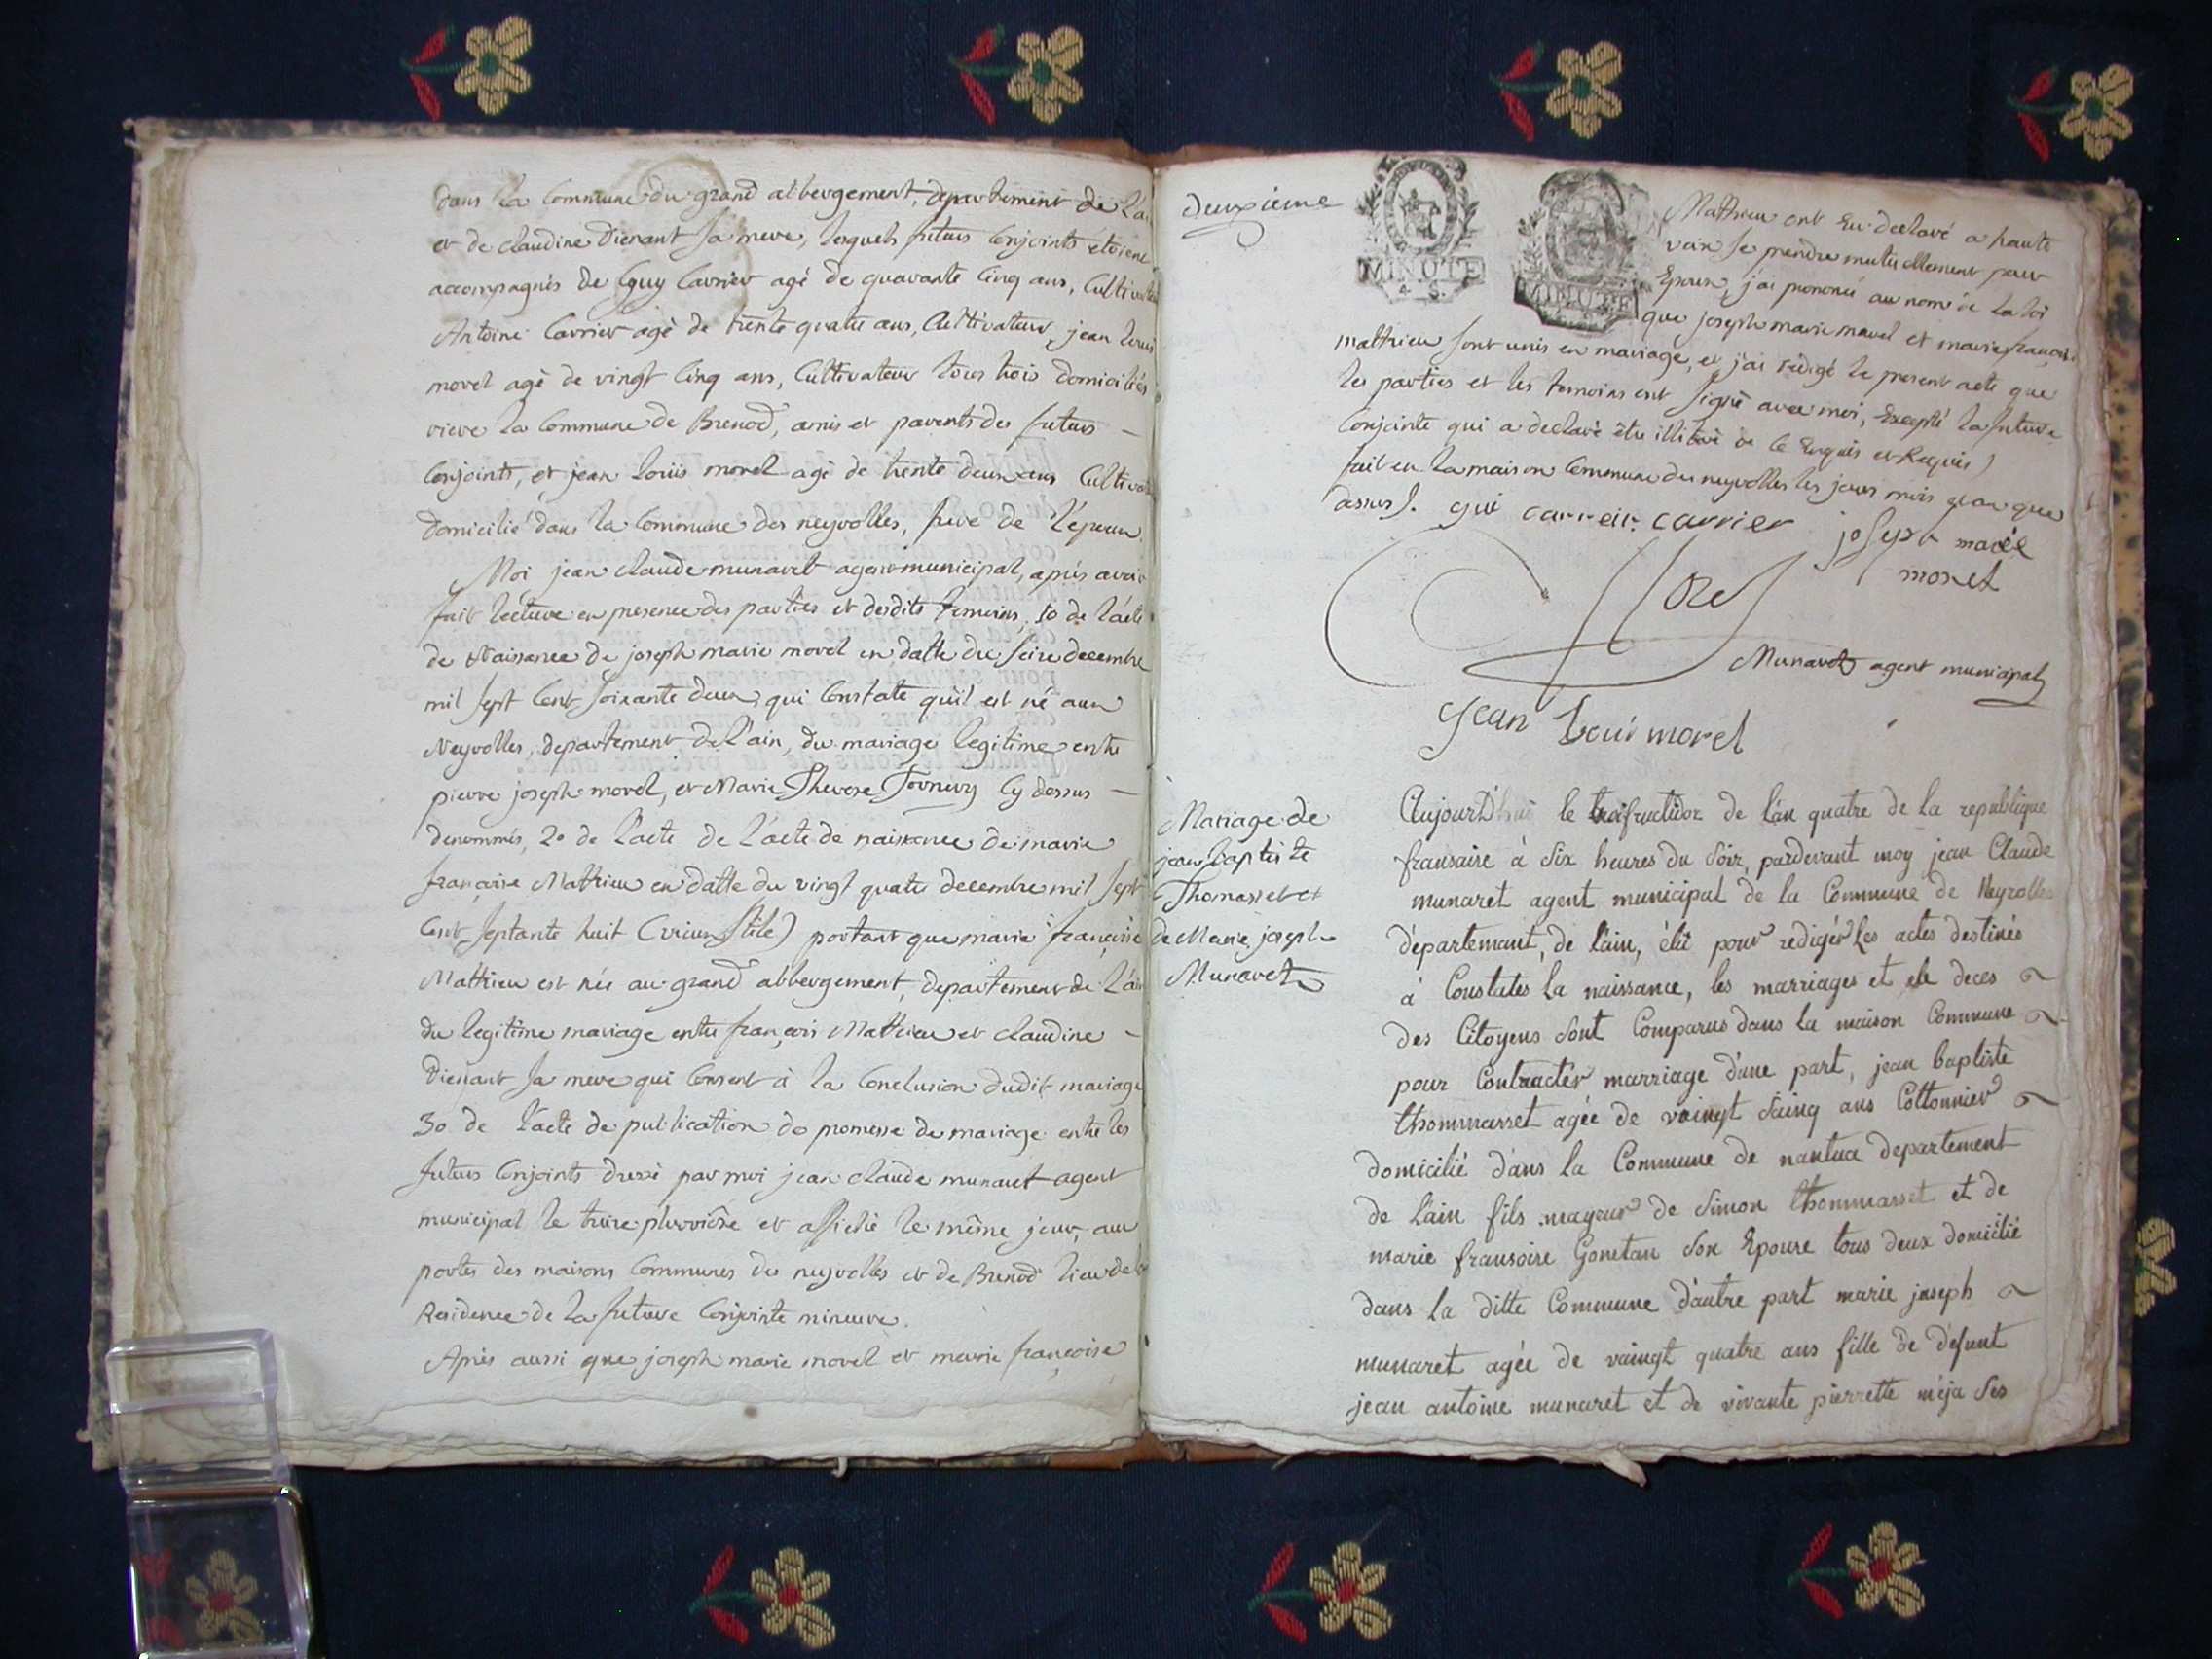 dans la Commune du grand abbergement, departement de l'ain
et de claudine Dienant sa mere, lesquels futurs Conjoints étoient
accompagnés de Guy Carrier agé de quarante Cinq ans, Cultivateur
Antoine Carrier agé de trente quatre ans, Cultivateur, jean louis
morel agé de vingt Cinq ans, Cultivateur tous trois domiciliés
riere la Commune de Brenod, amis et parents des futurs
Conjoints, et jean louis morel agé de trente deux ans Cultivateur
domicilié dans la Commune des neyrolles, frere de l'époux
Moi jean claude munaret agent municipal, apres avoir
fait lecture en presence des parties et desdits temoins, 1o de l'acte
de Naissance de joseph marie morel en datte du seize decembre
mil sept Cent soixante deux qui Constate qu'il est né aux
Neyrolles, departement de l'ain, du mariage legitime entre
pierre joseph morel, et Marie Therese Cy dessus
denommés, 2o de l'acte de l'acte de naissance de marie
françoise Mathieu en datte du vingt quatre decembre mil sept
Cent septante huit (vieux stile) portant que marie françoise
Mathieu est née au grand abbergement, departement de l'ain
du legitime mariage entre françois Mathieu et claudine
Dienant sa mere qui Consent à la Conclusion dudit mariage
3o de l'acte de publication de promesse de mariage entre les
futurs Conjoints dressé par moi jean claude munaret agent
municipal le treize pluviôse et affiché le même jour, aux
portes des maisons Communes des neyrolles et de Brenod lieu de la
Residence de la future Conjointe mineure.
Après aussi que joseph marie morel et marie françoise
deuxieme
MINUTE
4 S.
MINUTE
Mathieu ont Eu declaré a haute
voix se prendre mutuellement pour
Epoux, j'ai prononcé au nom de la loi
que joseph marie morel et marie françoise
mathieu sont unis en mariage, et j'ai redigé le present acte que
les parties et les temoins ont signé avec moi, Excepté la future
Conjointe qui a declaré être illiteré de ce Enquis et Requis)
fait en la maison Commune des neyrolles les jours mois et an que
dessus). gui carreir carrier joseph marie
morel
Munaret agent municipal
jean Loui morel
Mariage de
jean baptiste
Thomasset et
de Marie joseph
Munaret
Aujourd'hui le troi fructidor de l'an quatre de la republique
fransaise à six heures du soir, pardevant moy jean Claude
munaret agent municipal de la Commune de Neyrolles
departemant, de l'ain, élû pour redigér les actes destinés
à Constates la naissance, les marriages et le deces
des Citoyens sont Comparus dans la maison Commune
pour Contractér marriage d'une part, jean baptiste
thommasset agée de vaingt sainq ans Cottonnier
domicilié d'ans la Commune de nantua departement
de l'ain fils mayeur de Simon thommasset et de
marie fransoise Gonetan son Epouse tous deux domicilié
dans la ditte Commune d'autre part marie joseph
munaret agée de vaingt quatre ans fille de défunt
jean antoine munaret et de vivante pierrette méja ses